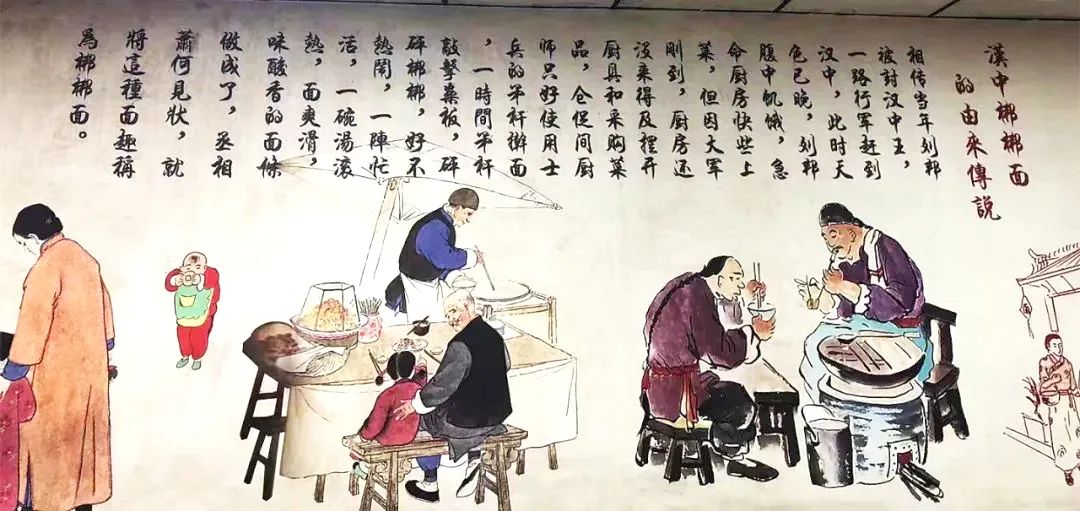 漢中梆梆面
的由來傳説
相传当年刘邦
被封汉中王，
一路行军赶到
汉中，此时天
色已晚，刘邦
腹中饥饿，急
命厨房快些上
菜，但因大军
刚到，厨房还
没来得及摆开
厨具和采购菜
品，仓促间厨
师只好使用士
兵的竿杆擀面
，一時間竿杆
敲擊案板，砰
砰梆梆，好不
熱鬧，一陣忙
活，一碗湯滚
熱，面爽滑，
味酸香的面條
做成了，丞相
蕭何見狀，就
將這種面趣稱
為梆梆面。